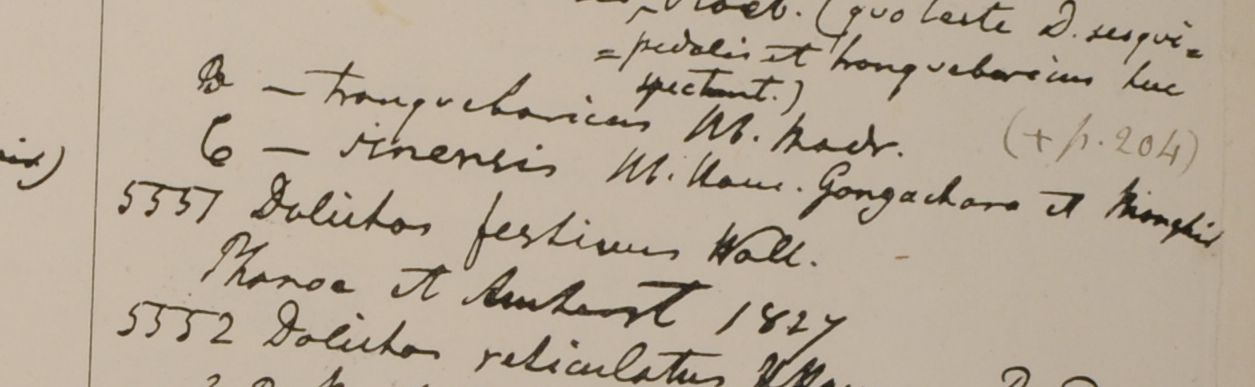 Roxb. (quo teste D. sesqui=
=pedalis et tranquebaricus huc
spectant.)
B — tranquebaricus M. Madr. (+ p. 204)
C — sinensis M. Ham. Gongachora et
5551 Dolichos festivus Wall.
Phanoe et Amherst 1827
5552 Dolichos reticulatus